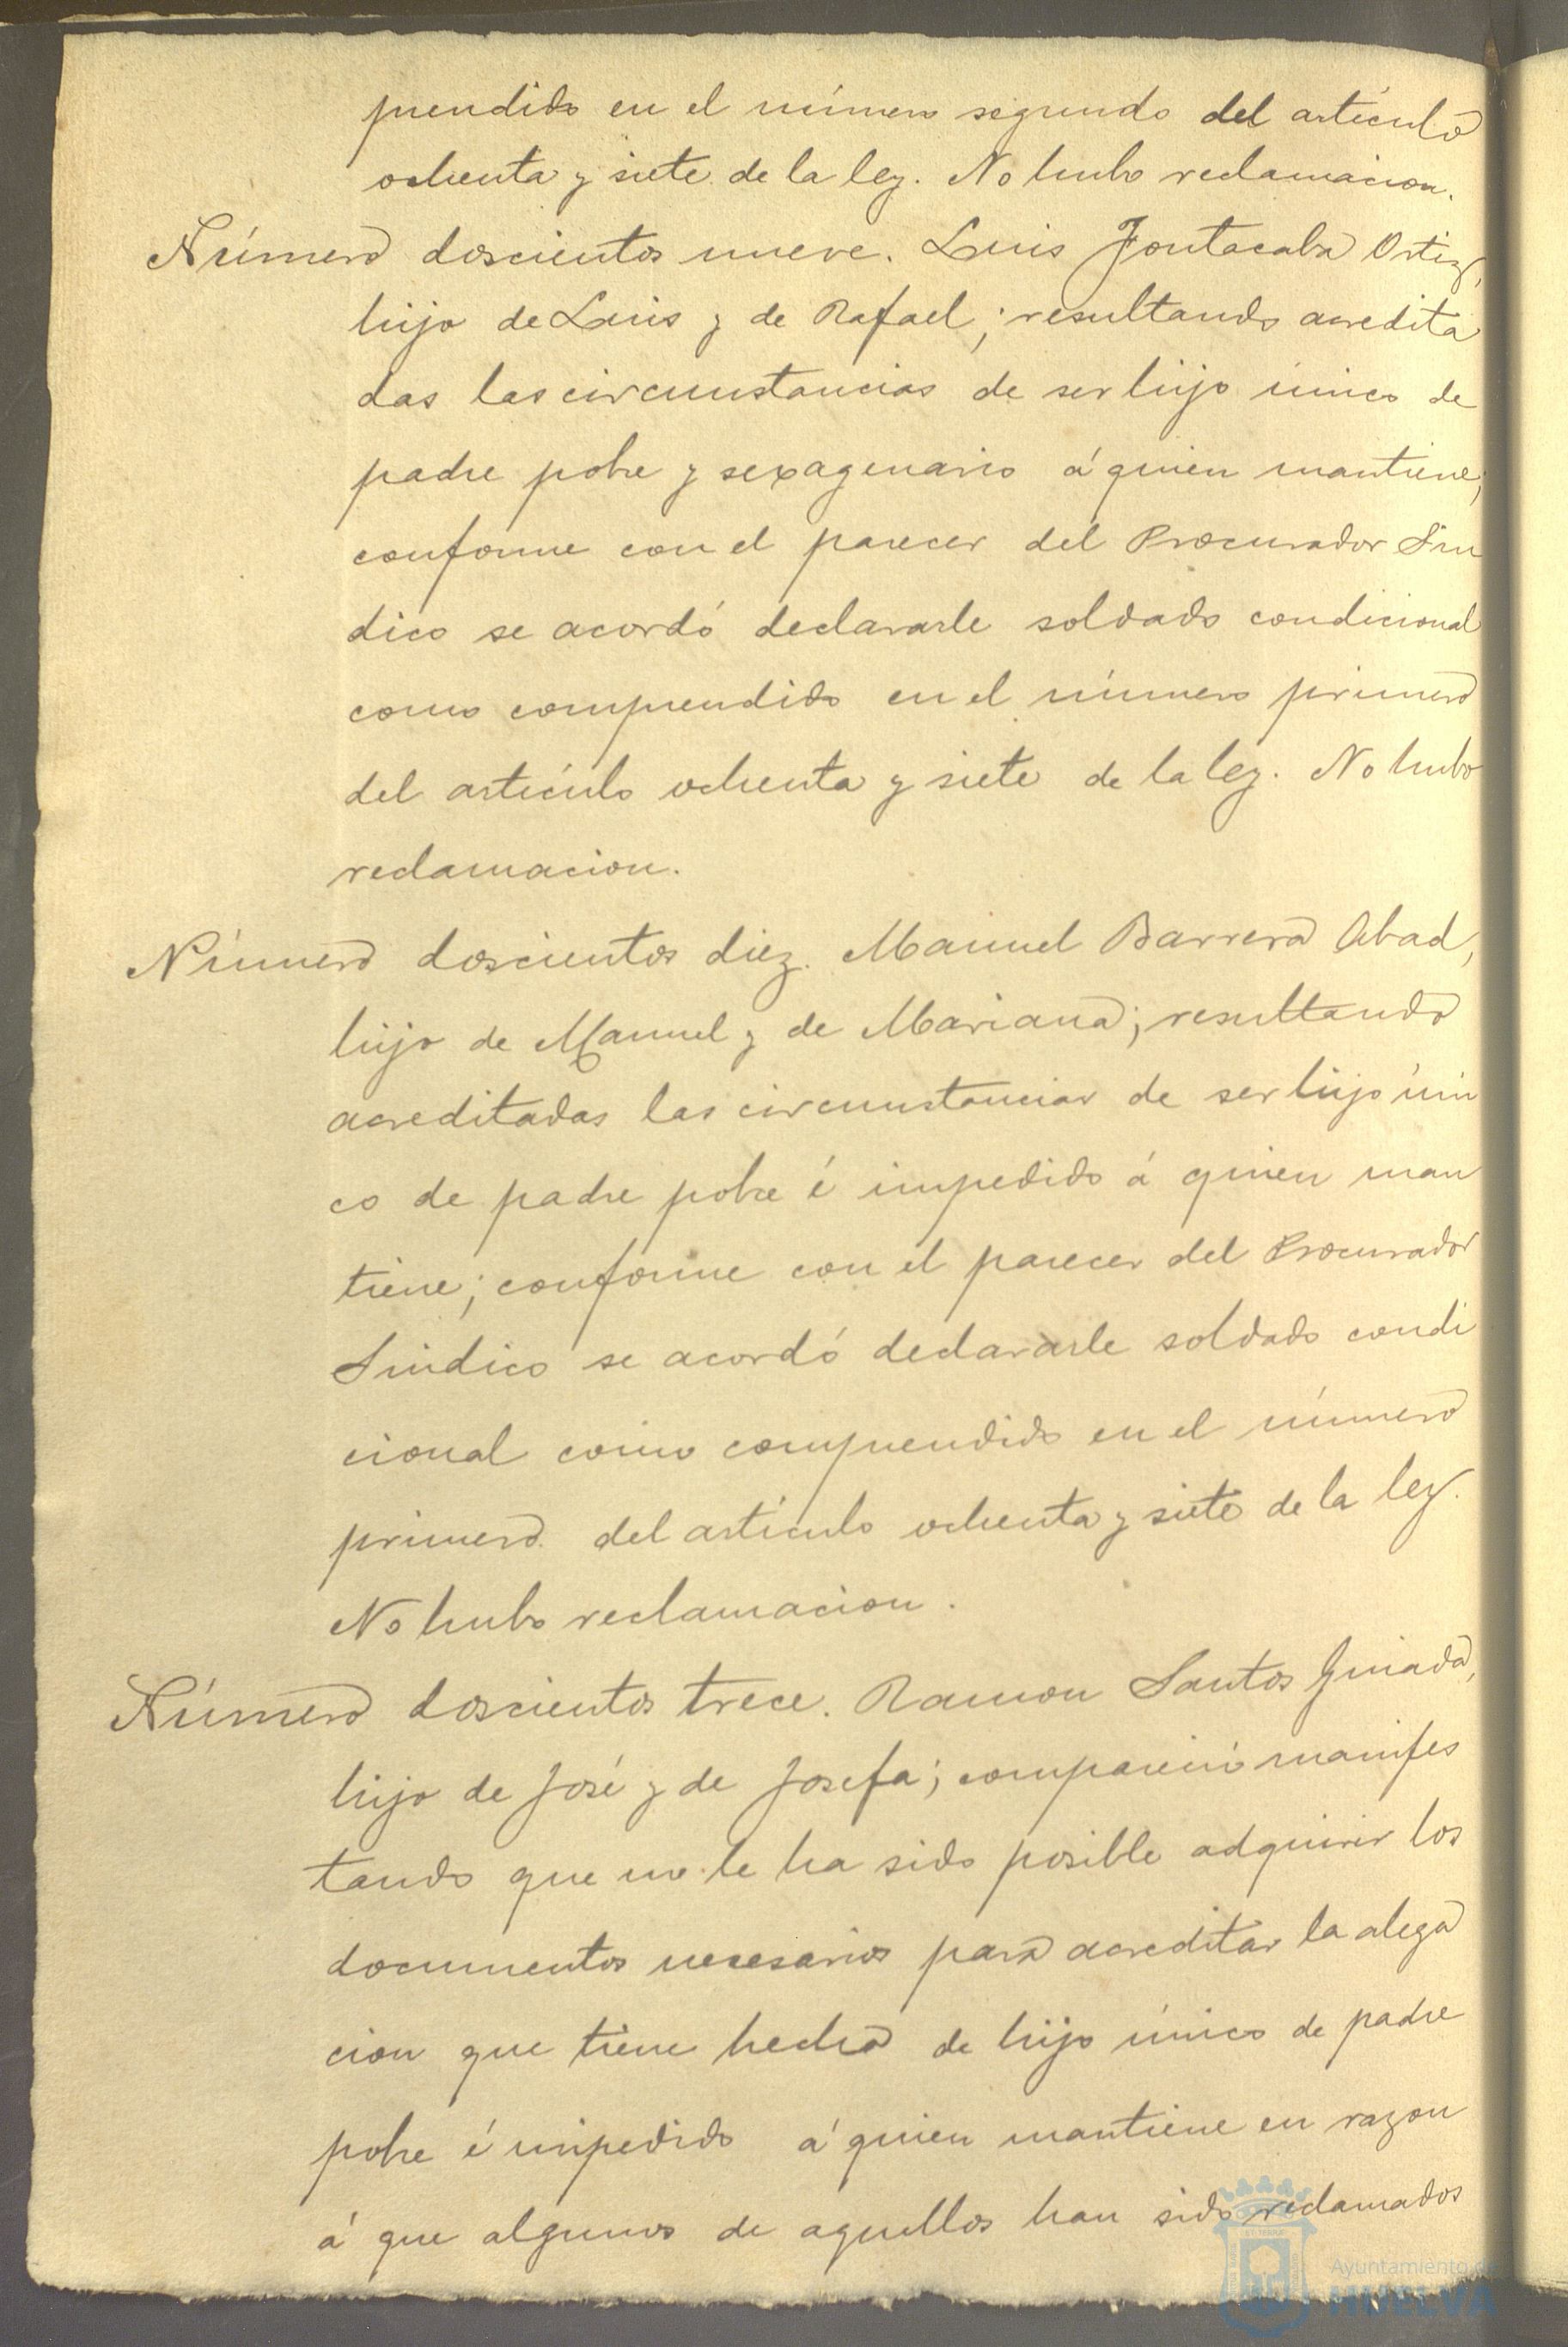 prendido en el número segundo del artículo
ochenta y siete de la ley. No hubo reclamacion.
Número doscientos nueve. Luis Fontacaba Ortiz,
hijo de Luis y de Rafael; resultando acredita
das las circunstancias de ser hijo único de
padre pobre y sexagenario á quien mantiene;
conforme con el parecer del Procurador Sin
dico se acordó declararle soldado condicional
como comprendido en el número primero
del artículo ochenta y siete de la ley. No hubo
reclamacion.
Número doscientos diez. Manuel Barrera Abad,
hijo de Manuel y de Mariana; resultando
acreditadas las circunstancias de ser hijo úni
co de padre pobre é impedido á quien man
tiene; conforme con el parecer del Procurador
Sindico se acordó declararle soldado condi
cional como comprendido en el número
primero del artículo ochenta y siete de la ley.
No hubo reclamacion.
Número doscientos trece. Ramon Santos
hijo de José y de Josefa; compareció manifes
tando que no le ha sido posible adquirir los
documentos necesarios para acreditar la alega
cion que tiene hecha de hijo único de padre
pobre é impedido á quien mantiene en razon
á que algunos de aquellos han sido reclamados
Ayuntamiento de
HUELVA